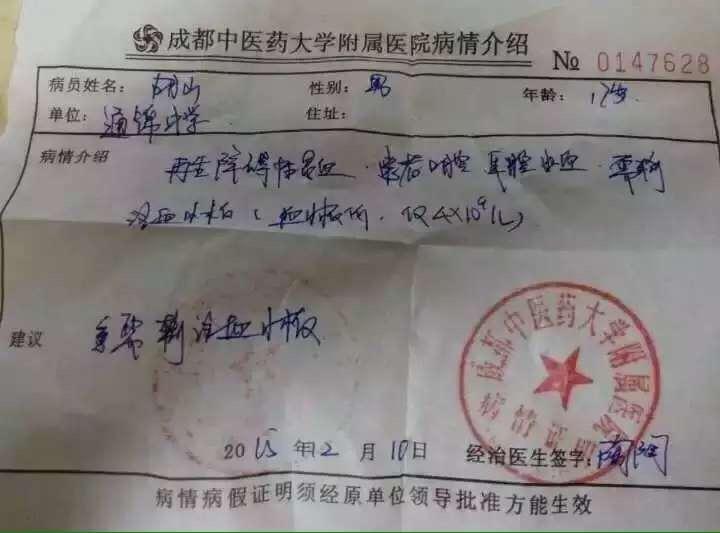 成都中医药大学附属医院病情介绍
№ 0147628
病员姓名： 性别：男 年龄：
单位：通锦中学 住址：
病情介绍 再生障碍性贫血．患者口腔 耳腔出血．需输
注血小板（血小板 ．仅4×10⁹/L）
建议 急需输注血小板
2015年12月10日 经治医生签字：
成都中医药大学附属医院
病情证明
病情病假证明须经原单位领导批准方能生效